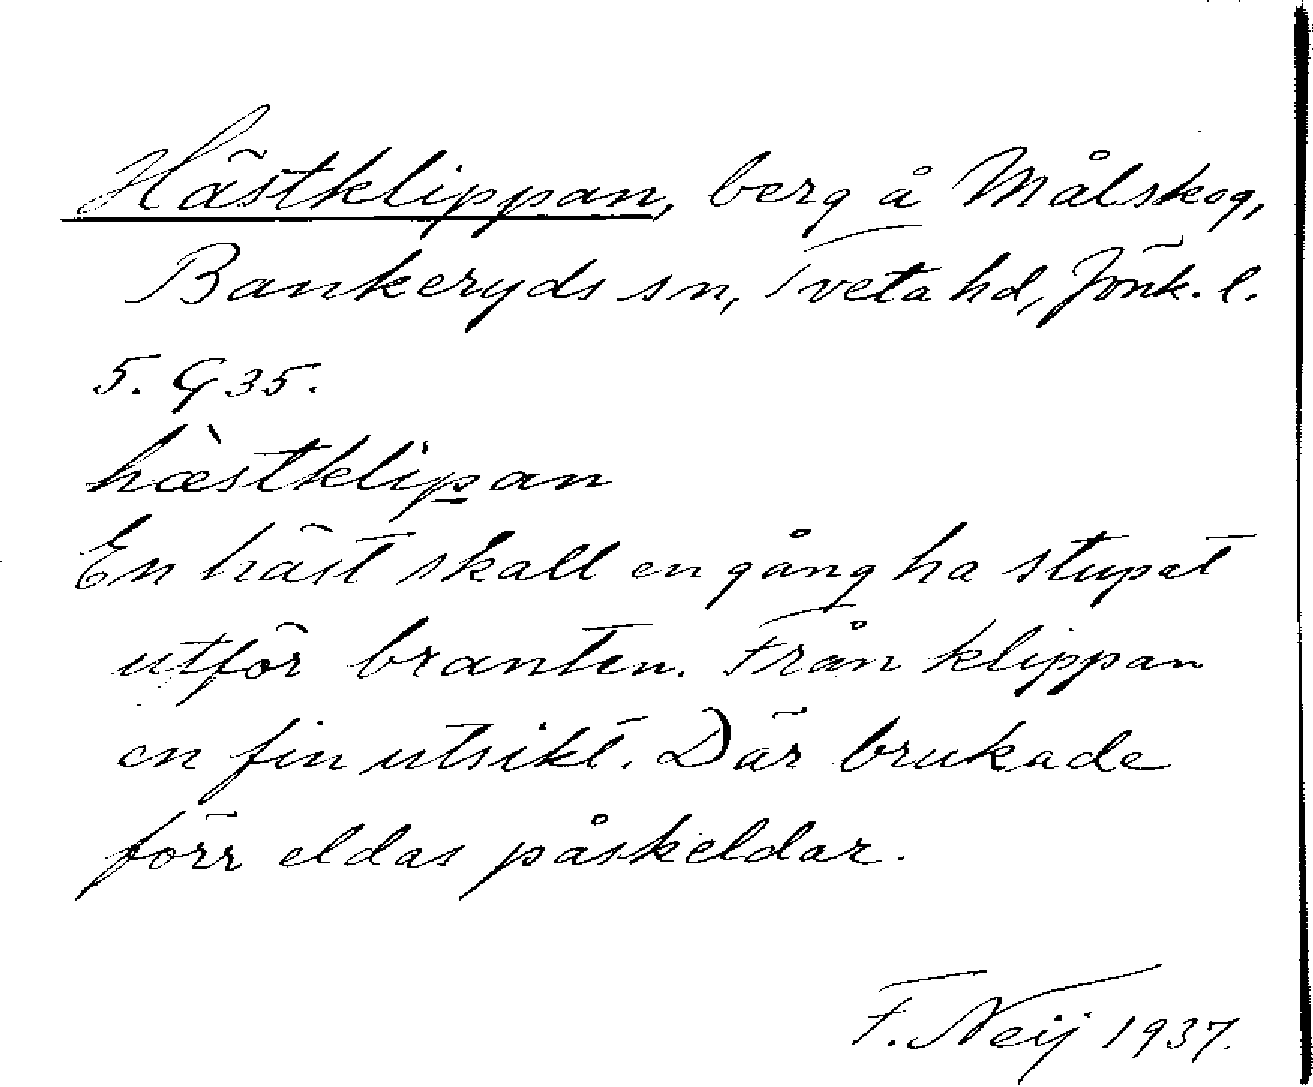 Hästklippan, berg å Målskog,
Bankeryds sn, Tveta hd, Jönk. l.
5. G 35.
hæ̀stklip̲an
En häst skall en gång ha stupat
utför branten. Från klippan
en fin utsikt. Där brukade
förr eldas påskeldar.
F. Neij 1937.